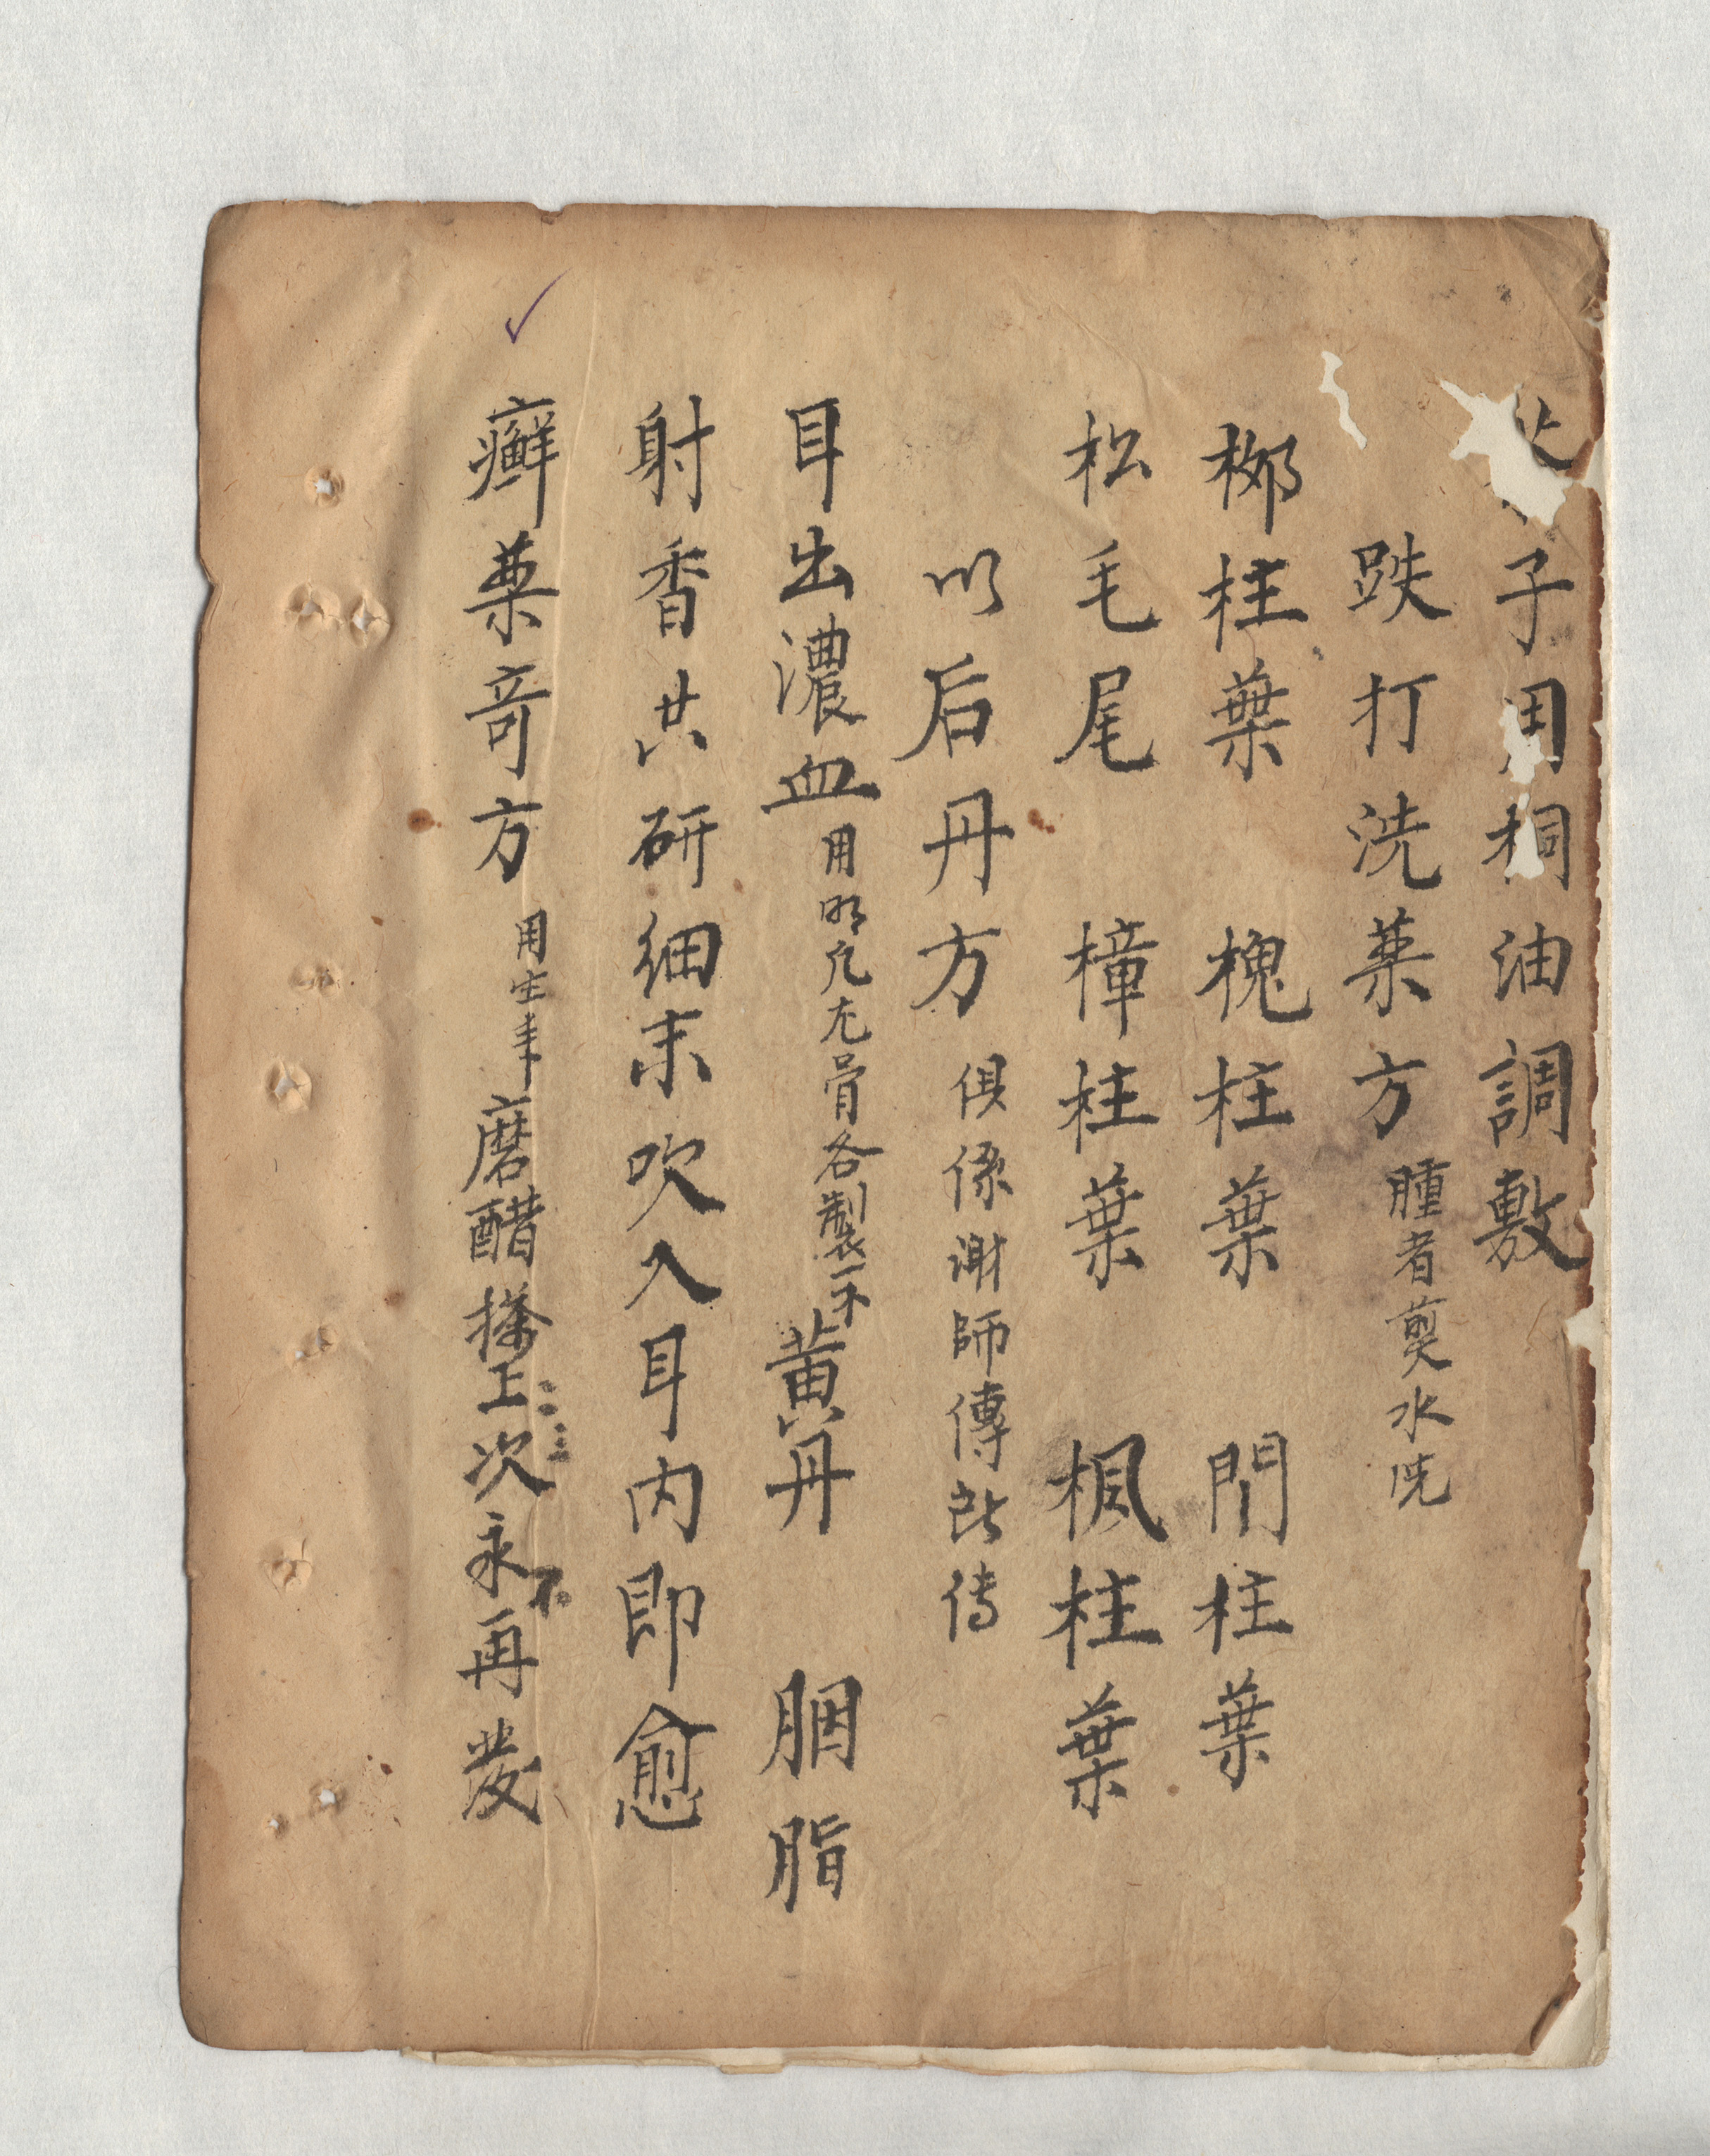 子用桐油調敷
跌打洗薬方 腫者煎水洗
柳枉葉 槐柱葉 門柱葉
松毛尾 樟枉葉 楓枉葉
以后丹方 俱係謝師傳此传
耳出濃血 用明凡尤骨各製一不 黄丹 胭脂
射香共研細末吹入耳内即愈
癬薬奇方 用生 磨醋搽上次永不再發